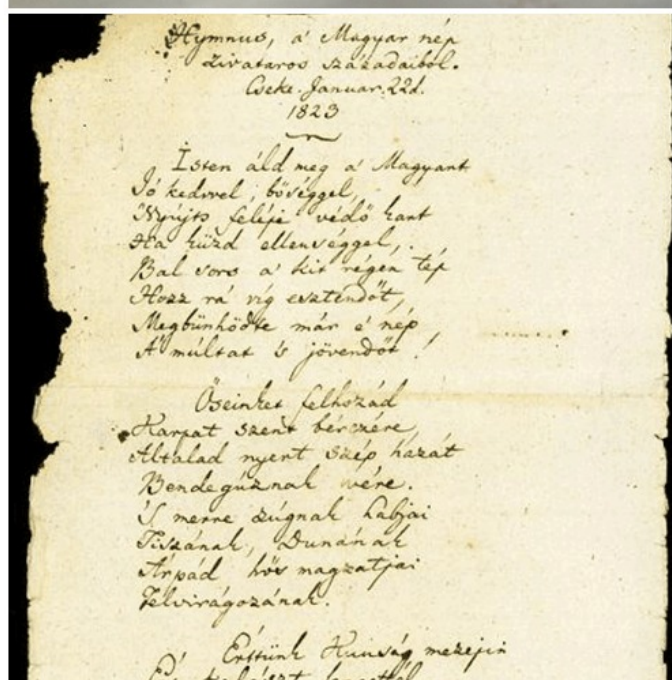 Hymnus, a' Magyar nép
zivataros századaiból.
Cseke. Januar. 22d.
1823
Isten áld meg a' Magyart
Jó kedvvel, bőséggel,
Nyújts feléje védő kart
Ha küzd ellenséggel,
Bal sors a' kit régen tép
Hozz rá víg esztendőt,
Megbűnhödte már e' nép
A' múltat 's jövendőt!
Őseinket felhozád
Kárpát szent bérczére,
Általad nyert szép hazát
Bendegúznak vére.
'S merre zúgnak habjai
Tiszának, Dunának
Árpád hős magzatjai
Felvirágozának.
Értünk Kunság mezején